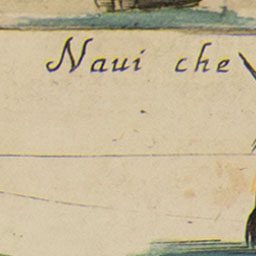 Naui che